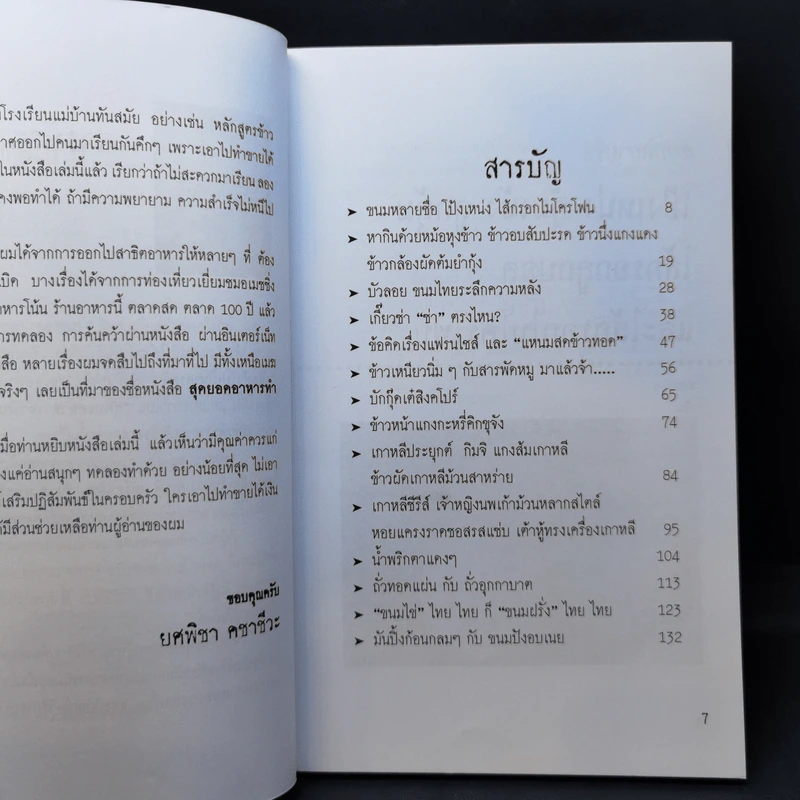 โรงเรียนแม่บ้านทันสมัย อย่างเช่น หลักสูตรข้าว
าศออกไปคนมาเรียนกันคึกๆ เพราะเอาไปทำขายได้
ในหนังสือเล่มนี้แล้ว เรียกว่าถ้าไม่สะดวกมาเรียน ลอง
คงพอทำได้ ถ้ามีความพยายาม ความสำเร็จไม่หนีไป
ผมได้จากการออกไปสาธิตอาหารให้หลายๆ ที่ ต้อง
เบิด บางเรื่องได้จากการท่องเที่ยวเยี่ยมชมอเมซซิ่ง
าหารโน้น ร้านอาหารนี้ ตลาดสด ตลาด 100 ปี แล้ว
ารทดลอง การค้นคว้าผ่านหนังสือ ผ่านอินเตอร์เน็ท
สือ หลายเรื่องผมจดสืบไปถึงที่มาที่ไป มีทั้งเหนือเมฆ
จริงๆ เลยเป็นที่มาของชื่อหนังสือ สุดยอดอาหารทำ
มื่อท่านหยิบหนังสือเล่มนี้ แล้วเห็นว่ามีคุณค่าควรแก่
งแค่อ่านสนุกๆ ทดลองทำด้วย อย่างน้อยที่สุด ไม่เอา
เสริมปฏิสัมพันธ์ในครอบครัว ใครเอาไปทำขายได้เงิน
ด้มีส่วนช่วยเหลือท่านผู้อ่านของผม
ขอบคุณครับ
ยศพิชา คชาชีวะ
สารบัญ
➤ ขนมหลายชื่อ โป้งเหน่ง ไส้กรอกไมโครโฟน 8
➤ หากินด้วยหม้อหุงข้าว ข้าวอบสับปะรด ข้าวนึ่งแกงแดง
ข้าวกล้องผัดต้มยำกุ้ง 19
➤ บัวลอย ขนมไทยระลึกความหลัง 28
➤ เกี๊ยวซ่า “ซ่า” ตรงไหน? 38
➤ ข้อคิดเรื่องแฟรนไชส์ และ “แหนมสดข้าวทอด” 47
➤ ข้าวเหนียวนิ่ม ๆ กับสารพัดหมู มาแล้วจ้า..... 56
➤ บักกุ๊ดเต๋สิงคโปร์ 65
➤ ข้าวหน้าแกงกะหรี่คิกขุจัง 74
➤ เกาหลีประยุกต์ กิมจิ แกงส้มเกาหลี
ข้าวผัดเกาหลีม้วนสาหร่าย 84
➤ เกาหลีซีรีส์ เจ้าหญิงนพเก้าม้วนหลากสไตล์
หอยแครงราดซอสรสแซ่บ เต้าหู้ทรงเครื่องเกาหลี 95
➤ น้ำพริกตาแดงๆ 104
➤ ถั่วทอดแผ่น กับ ถั่วอุกกาบาต 113
➤ “ขนมไข่” ไทย ไทย ก็ “ขนมฝรั่ง” ไทย ไทย 123
➤ มันปิ้งก้อนกลมๆ กับ ขนมปังอบเนย 132
7